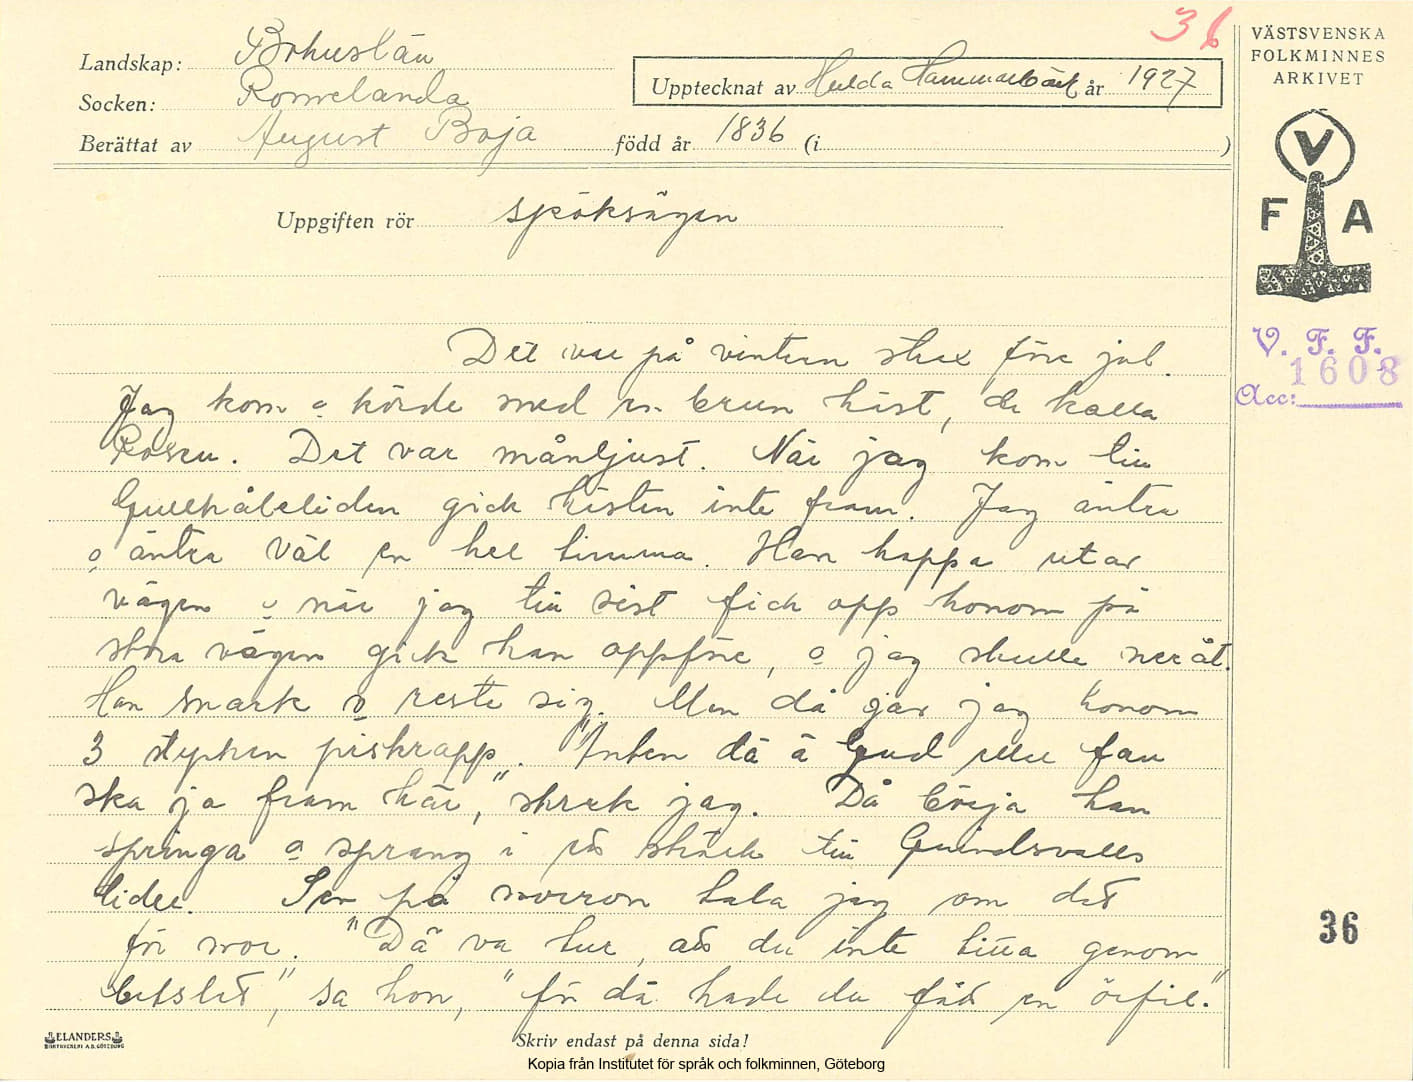 36
Landskap: Bohuslän
Socken: Romelanda
Berättat av August Boja född år 1836 (i )
Upptecknat av Hulda Hammarbäck år 1927
VÄSTSVENSKA
FOLKMINNES
ARKIVET
V
F A
V. F. F.
1608
Acc:
Uppgiften rör spöksägen
Det var på vintern strax före jul.
Jag kom o körde med en brun häst, de kalla
Råsen. Det var månljust. När jag kom till
Gullhåleliden gick hästen inte fram. Jag äntra
o äntra väl en hel timma. Han hoppa utav
vägen o när jag till sist fick opp honom på
stora vägen gick han oppföre, o jag skulle neråt.
Han snark o reste sig. Men då gav jag honom
3 stycken piskrapp. "Anten dä ä Gud eller fan
ska ja fram här," skrek jag. Då börja han
springa o sprang i ett sträck till
lider. Sen på morron tala jag om det
för mor. "Dä va tur, att du inte titta genom
betslet", sa hon, "för då hade du fått en örfil."
36
ELANDERS
BOKTRYCKERI A.B. GÖTEBORG
Skriv endast på denna sida!
Kopia från Institutet för språk och folkminnen, Göteborg